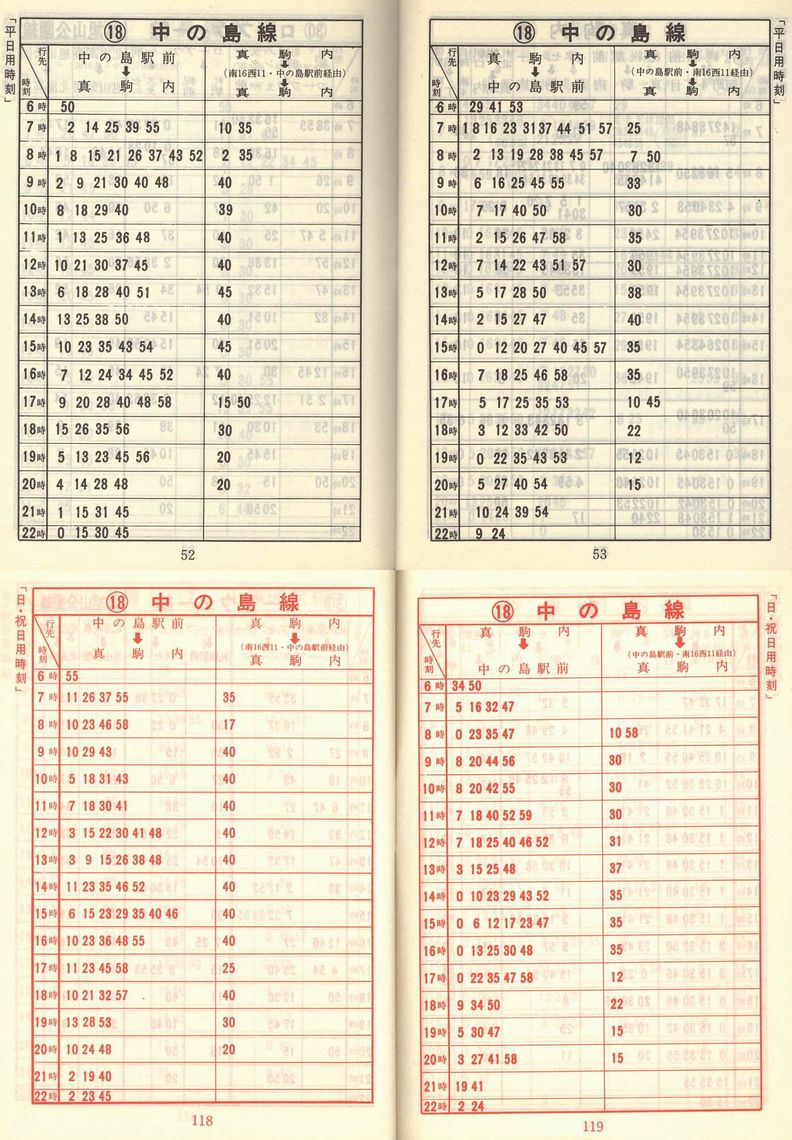 「平日用時刻」
⑱ 中の島線
行先
時刻
中の島駅前
⬇
真駒内
真駒内
⬇
(南16西11・中の島駅前経由)
⬇
真駒内
6時 50
7時 2 14 25 39 55 10 35
8時 1 8 15 21 26 37 43 52 2 35
9時 2 9 21 30 40 48 40
10時 8 18 29 40 39
11時 1 13 25 36 48 40
12時 10 21 30 37 45 40
13時 6 18 28 40 51 45
14時 13 25 38 50 40
15時 10 23 35 43 54 45
16時 7 12 24 34 45 52 40
17時 9 20 28 40 48 58 15 50
18時 15 26 35 56 30
19時 5 13 23 45 56 20
20時 4 14 28 48 20
21時 1 15 31 45
22時 0 15 30 45
52
「平日用時刻」
⑱ 中の島線
行先
時刻
真駒内
⬇
中の島駅前
真駒内
⬇
(中の島駅前・南16西11経由)
⬇
真駒内
6時 29 41 53
7時 1 8 16 23 31 37 44 51 57 25
8時 2 13 19 28 38 45 57 7 50
9時 6 16 25 45 55 33
10時 7 17 40 50 30
11時 2 15 26 47 58 35
12時 7 14 22 43 51 57 30
13時 5 17 28 50 38
14時 2 15 27 47 40
15時 0 12 20 27 40 45 57 35
16時 7 18 25 46 58 35
17時 5 17 25 35 53 10 45
18時 3 12 33 42 50 22
19時 0 22 35 43 53 12
20時 5 27 40 54 15
21時 10 24 39 54
22時 9 24
53
「日・祝日用時刻」
⑱ 中の島線
行先
時刻
中の島駅前
⬇
真駒内
真駒内
⬇
(南16西11・中の島駅前経由)
真駒内
6時 55
7時 11 26 37 55 35
8時 10 23 46 58 17
9時 10 29 43 40
10時 5 18 31 43 40
11時 7 18 30 41 40
12時 3 15 22 30 41 48 40
13時 3 9 15 26 38 48 40
14時 11 23 35 46 52 40
15時 6 15 23 29 35 40 46 40
16時 10 23 36 48 55 40
17時 11 23 45 58 25
18時 10 21 32 57 40
19時 13 28 53 30
20時 10 24 48 20
21時 2 19 40
22時 2 23 45
118
「日・祝日用時刻」
⑱ 中の島線
行先
時刻
真駒内
⬇
中の島駅前
真駒内
⬇
(中の島駅前・南16西11経由)
真駒内
6時 34 50
7時 5 16 32 47
8時 0 23 35 47 10 58
9時 8 20 44 56 30
10時 8 20 42 55 30
11時 7 18 40 52 59 30
12時 7 18 25 40 46 52 31
13時 3 15 25 48 37
14時 0 10 23 29 43 52 35
15時 0 6 12 17 23 47 35
16時 0 13 25 30 48 35
17時 0 22 35 47 58 12
18時 9 34 50 22
19時 5 30 47 15
20時 3 27 41 58 15
21時 19 41
22時 2 24
119